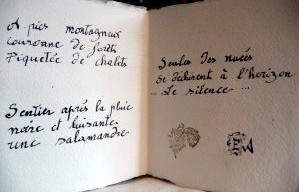 A pics montagneux
Couronne de forêts
Piquetée de chalets
Sentier après la pluie
noire et luisante
une salamandre
Seules des nuées
se déchirent à l'horizon
Le silence ...